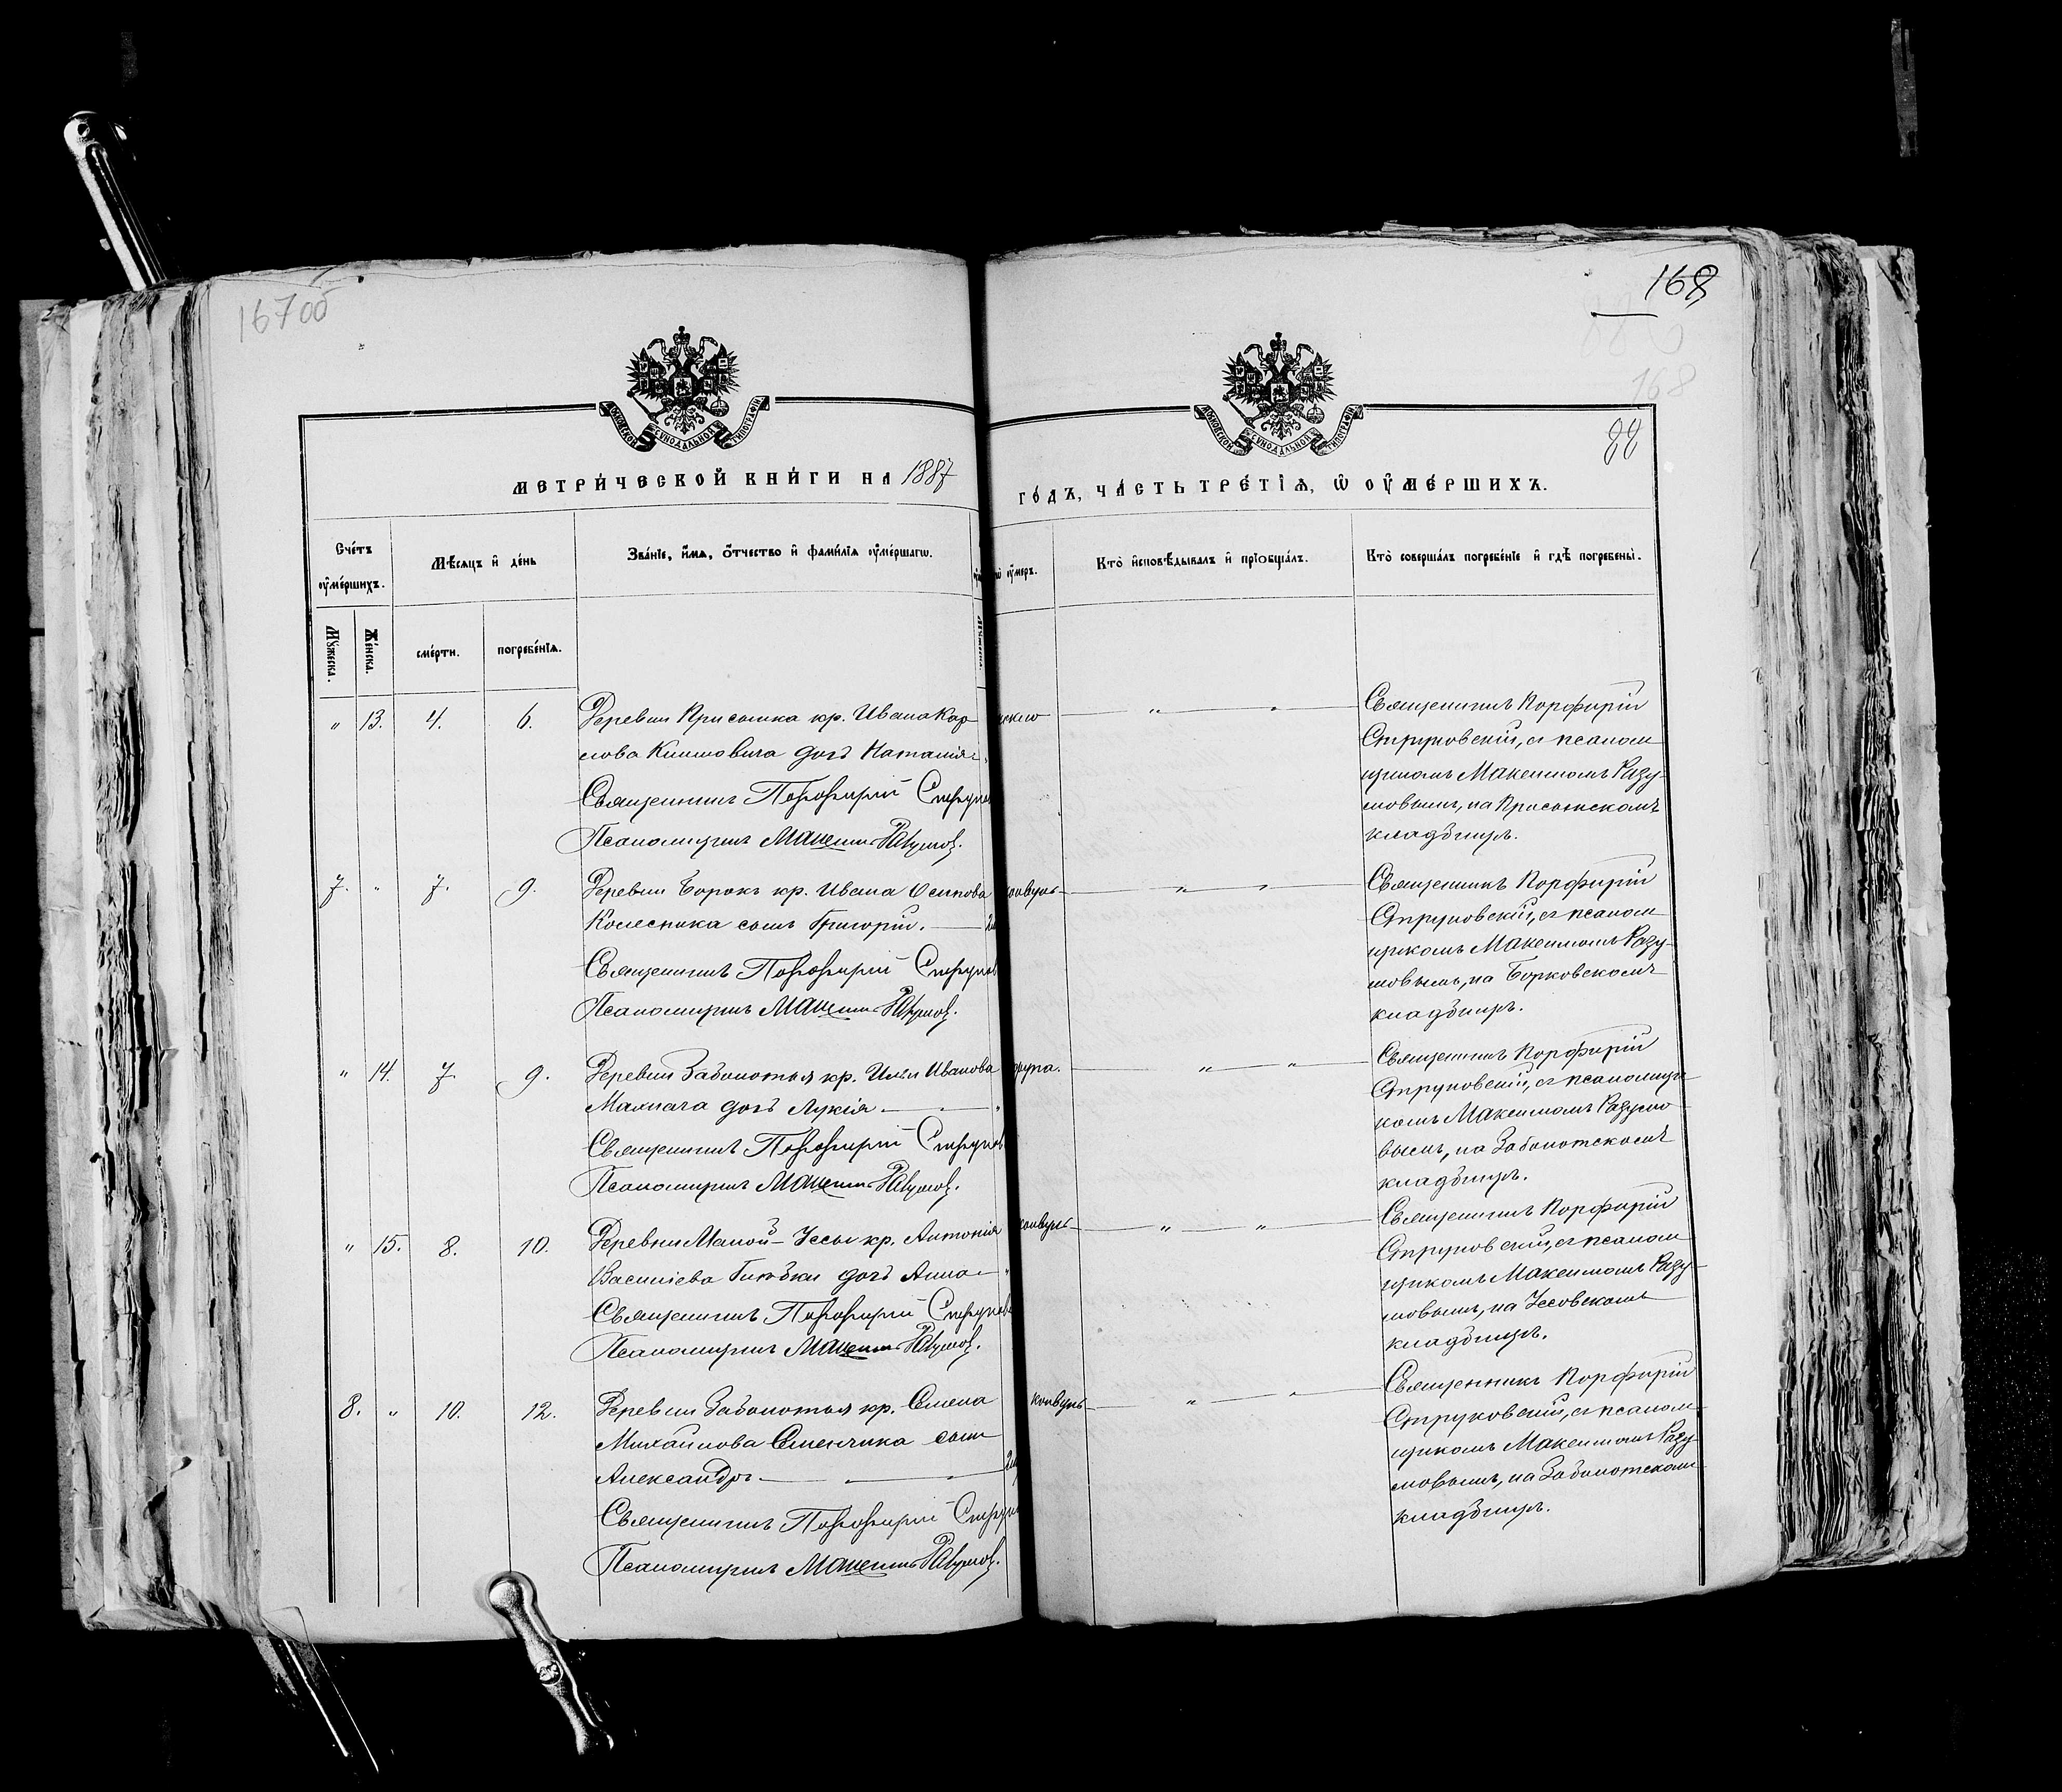 167об
168
168
88
МОСКОВСКОЙ СѴНОДАЛЬНОЙ ТИПОГРАФІИ
МОСКОВСКОЙ СѴНОДАЛЬНОЙ ТИПОГРАФІИ
МЕТРИ́ЧЕСКОЙ КНИ́ГИ НА 1887
ГО́ДЪ, ЧА́СТЬ ТРЕ́ТІѦ, Ѡ ОУ҆МЕ́РШИХЪ.
Сче́тъ оу҆ме́ршихъ.
Мѣ́сяцъ и҆ де́нь
Зва́нїе, и҆́мѧ, ѻ҆́тчество и҆ фами́лїѧ оу҆ме́ршагѡ.
оу҆́меръ.
Кто̀ и҆сповѣ́дывалъ и҆ прїобща́лъ.
Кто̀ соверша́лъ погребе́нїе и҆ гдѣ̀ погребены̀.
Мꙋ́жеска.
Же́нска.
сме́рти.
погребе́нїѧ.
" 13. 4. 6. Деревни Присынка кр. Ивана Кар-
лова Климовича дочь Наталія
Священникъ Порфирій Струков
Псаломщикъ Максимъ Разумов.
" "
Священникъ Порфирій
Струковскій, съ псалом
щикомъ Максимомъ Разу-
мовымъ, на Присынскомъ
кладбищѣ.
7. " 7. 9. Деревни Борокъ кр. Ивана Осипова
Колесника сынъ Григорій.
Священникъ Порфирій Струков
Псаломщикъ Максимъ Разумов.
" "
Священникъ Порфирій
Струковскій, съ псалом
щикомъ Максимомъ Разу-
мовымъ, на Борковскомъ
кладбищѣ.
" 14. 7. 9. Деревни Заболотья кр. Ильи Иванова
Махнача дочь Лукія
Священникъ Порфирій Струков
Псаломщикъ Максимъ Разумов.
крупа.
" "
Священникъ Порфирій
Струковскій, съ псаломщи
комъ Максимомъ Разумо
вымъ, на Заболотскомъ
кладбищѣ.
" 15. 8. 10. Деревни Малой-Уссы кр. Антонія
Василіева дочь Анна
Священникъ Порфирій Струков
Псаломщикъ Максимъ Разумов.
конвулс
" "
Священникъ Порфирій
Струковскій, съ псалом
щикомъ Максимомъ Разу-
мовымъ, на Уссовскомъ
кладбищѣ.
8. " 10. 12. Деревни Заболотья кр. Семена
Михайлова Семенчика сынъ
Александръ
Священникъ Порфирій Струк
Псаломщикъ Максимъ Разумов.
конвулс
" "
Священникъ Порфирій
Струковскій, съ псалом
щикомъ Максимомъ Разу
мовымъ, на Заболотскомъ
кладбищѣ.